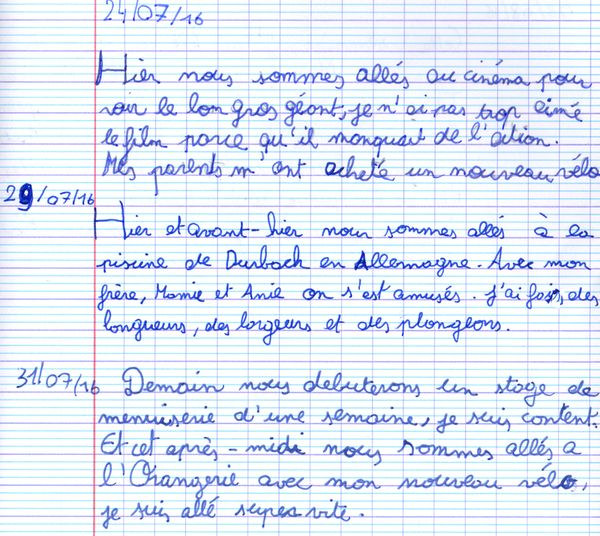 24/07/16
Hier nous sommes allés au cinéma pour
voir le bon gros géant, je n'ai pas trop aimé
le film parce qu'il manquait de l'action.
Mes parents m'ont acheté un nouveau vélo
29/07/16
Hier et avant-hier nous sommes allés à la
piscine de Durbach en Allemagne. Avec mon
frère, Mamie et Anie on s'est amusés. J'ai fais, des
longueurs, des largeurs et des plongeons.
31/07/16 Demain nous debuterons un stage de
menuiserie d'une semaine, je suis content.
Et cet après-midi nous sommes allés a
l'Orangerie avec mon nouveau vélo,
je suis allé super vite.